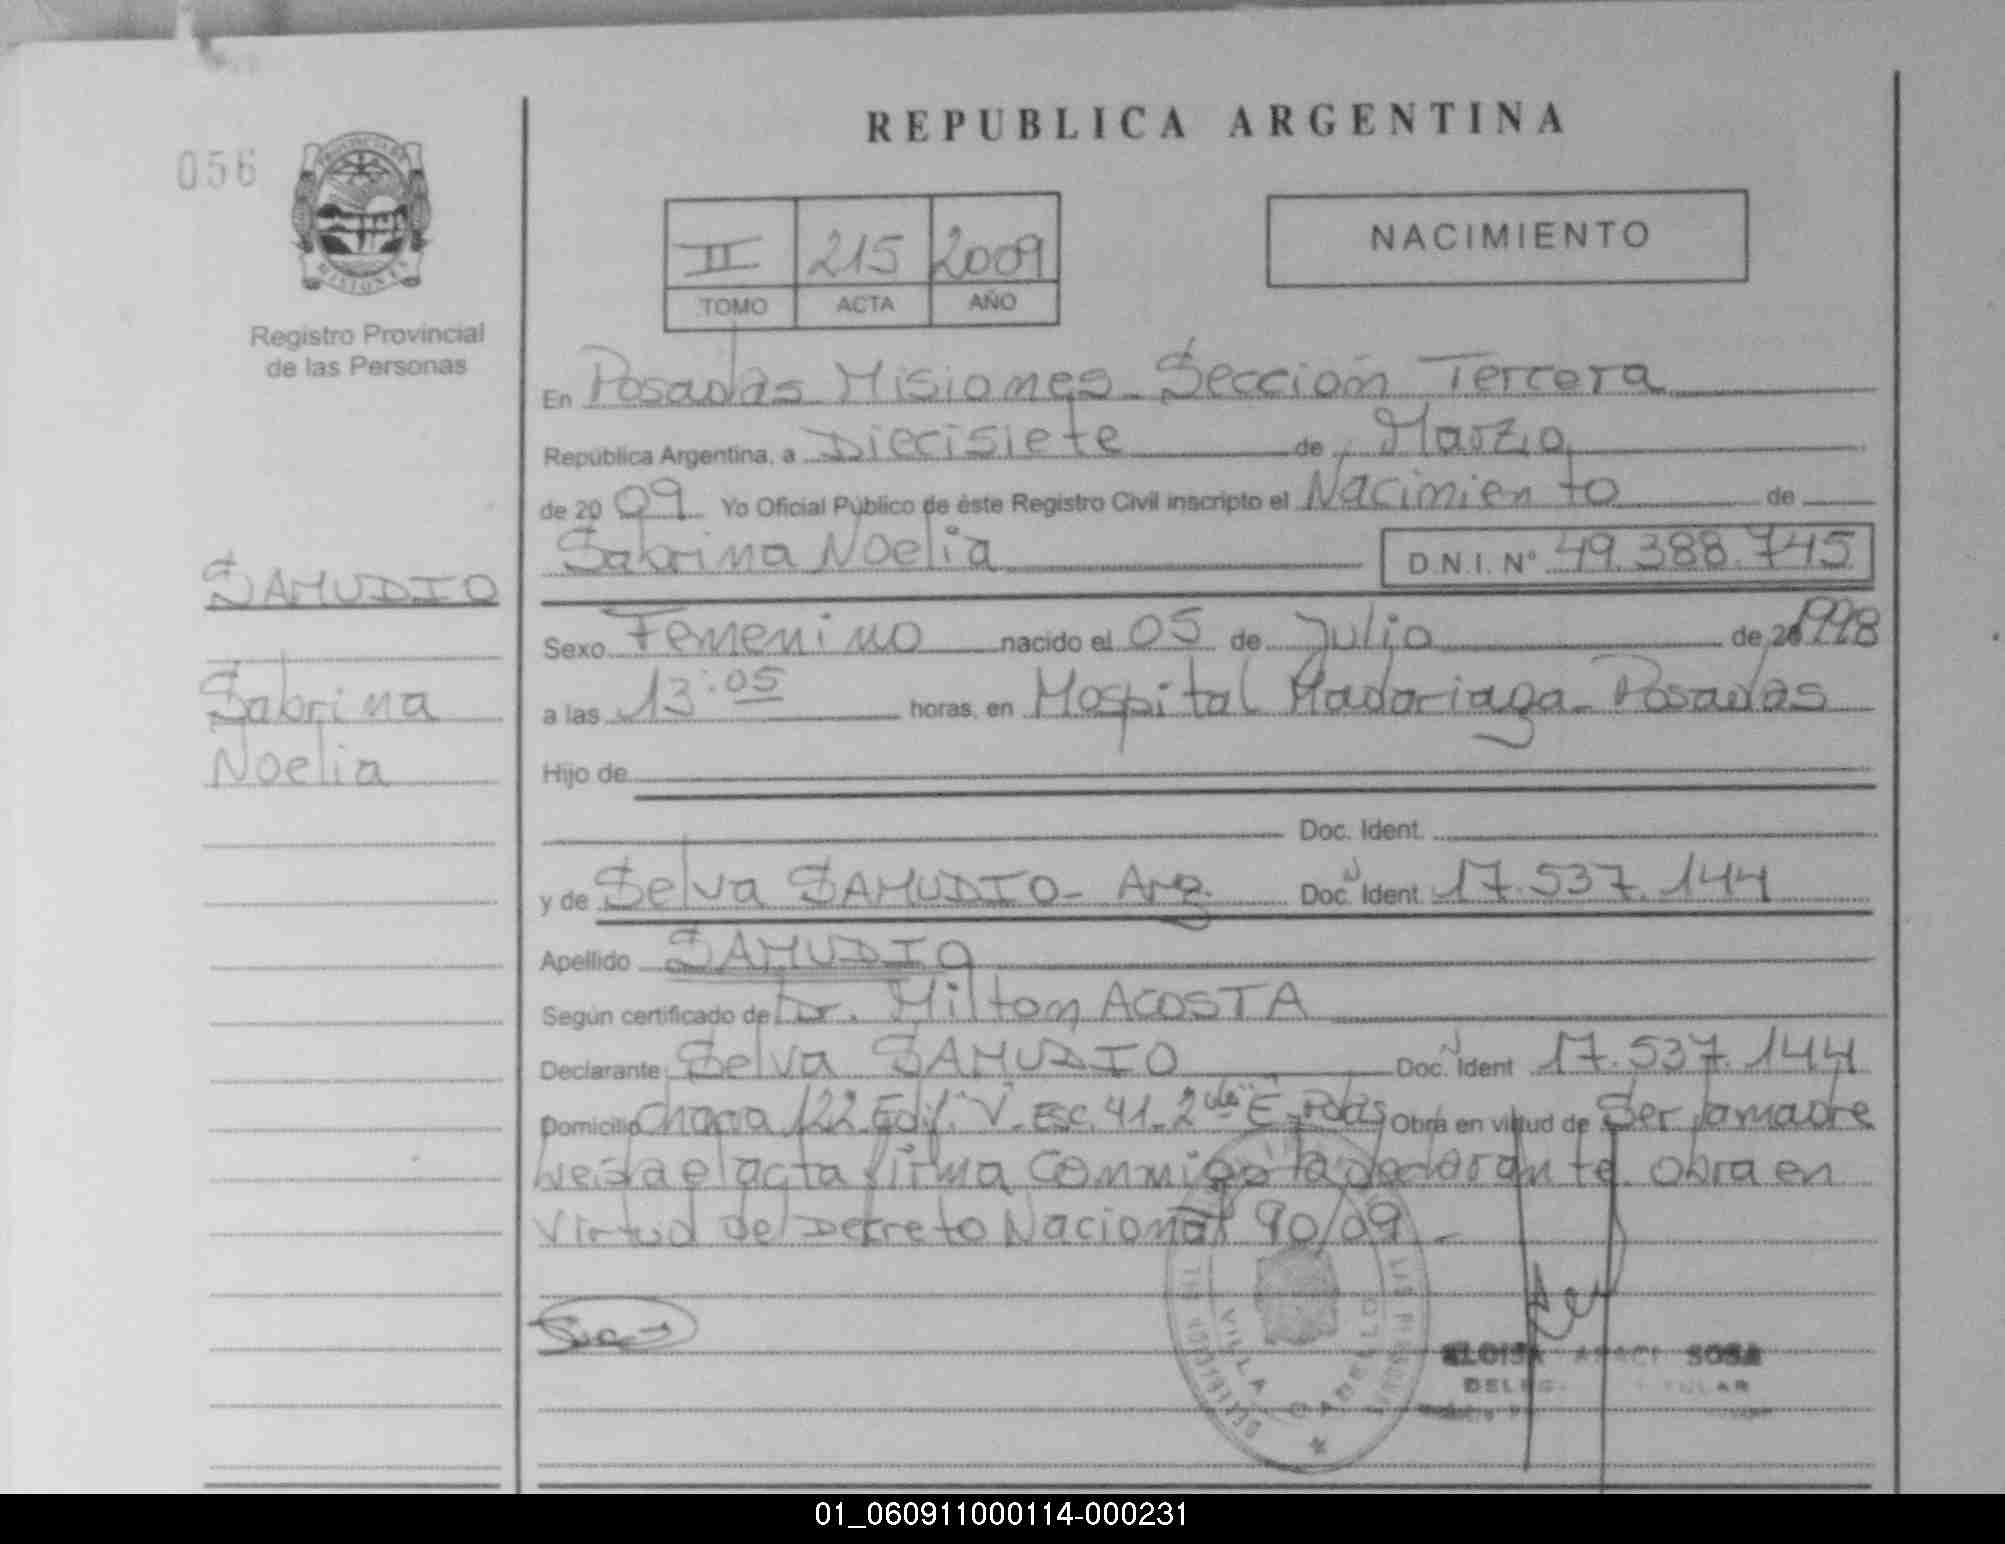 REPUBLICA ARGENTINA
056
PROVINCIA DE
MISIONES
Registro Provincial
de las Personas
II 215 2009
TOMO ACTA AÑO
NACIMIENTO
En Posadas Misiones. Sección Tercera
República Argentina, a Diecisiete de Marzo
de 20 09 Yo Oficial Público de éste Registro Civil inscripto el Nacimiento de
Sabrina Noelia D.N.I. Nº 49.388.745
SAMUDIO
Sabrina
Noelia
Sexo Femenino nacido el 05 de Julio de 20 1998
a las 13:05 horas, en Hospital Madariaga - Posadas
Hijo de
Doc. Ident.
y de Selva SAMUDIO - Arg. Doc. Ident. 17.537.144
Apellido SAMUDIO
Según certificado de Dr. Milton ACOSTA
Declarante Selva SAMUDIO Doc. Ident 17.537.144
Domicilio Chacra 122 Edif. V. Esc. 41. 2 E - Pdas Obra en virtud de Ser la madre
leída el acta firma conmigo la declarante obra en
virtud del Decreto Nacional 90/09 -
VILLA CABELLO
ELOISA SOSA
01_060911000114-000231